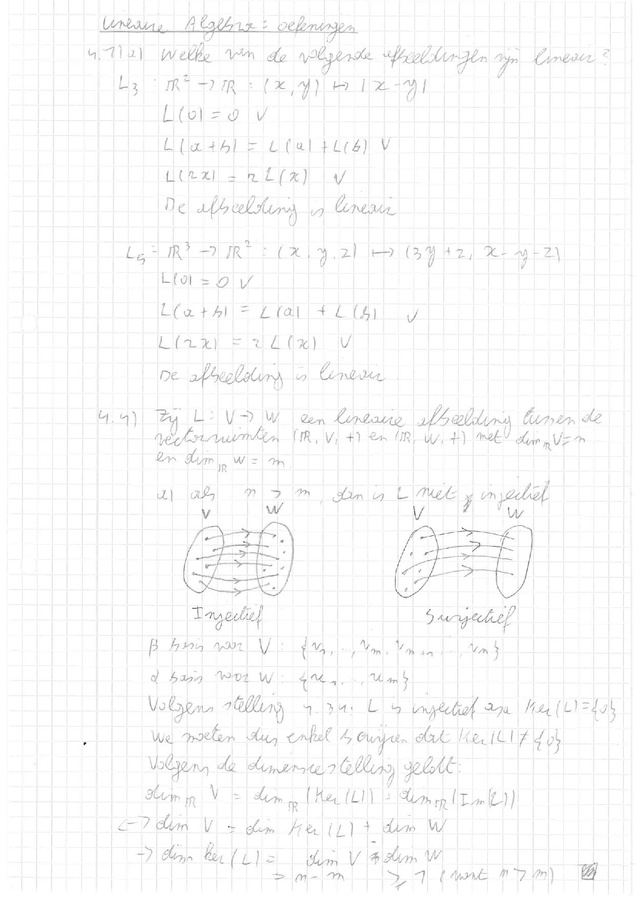 Lineaire Algebra: oefeningen
4.7)a) Welke van de volgende afbeeldingen zijn lineair?
L3 : ℝ² → ℝ : (x, y) ↦ |x-y|
L(0) = 0 V
L(a+b) = L(a) + L(b) V
L(rx) = r L(x) V
De afbeelding is lineair
L5 = ℝ³ → ℝ² : (x, y, z) ↦ (3y+z, x-y-z)
L(0) = 0 V
L(a+b) = L(a) + L(b) V
L(rx) = r L(x) V
De afbeelding is lineair
4.4) Zij L : V → W een lineaire afbeelding tussen de
vectorruimten (ℝ, V, +) en (ℝ, W, +) met dim ℝ V = n
en dim ℝ W = m
a) als n > m, dan is L niet injectief
V W V W
Injectief Surjectief
β basis voor V : {v1, .., vm, vm+1, .., vn}
α basis voor W : {w1, .., wm}
Volgens stelling 4.34: L is injectief asa Ker(L) = {0}
We moeten dus enkel bewijzen dat Ker(L) ≠ {0}
Volgens de dimensiestelling geldt:
dim ℝ V = dim ℝ (Ker(L)) + dim ℝ (Im(L))
→ dim V = dim Ker(L) + dim W
→ dim Ker(L) = dim V - dim W
= n - m ≥ 1 (want n > m)